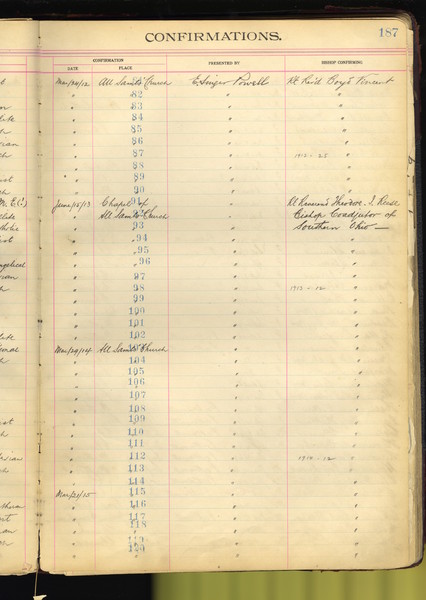 CONFIRMATIONS.
187
CONFIRMATION
DATE
PLACE
PRESENTED BY
BISHOP CONFIRMING.
Mar/24/12 All Saints Church E. Singer Powell Rt Rev'd Boyd Vincent
82
83
84
85
86
87 1912-25
88
89
90
June/15/13 Chapel of 91 Rt Reverend Theodore I. Reese
All Saints Church Bishop Coadjutor of
93 Southern Ohio —
94
95
96
97
98 1913-12
99
100
101
102
Mar/29/14 All Saints Church
104
105
106
107
108
109
110
111
112 1914-12
113
114
Mar/21/15 115
116
117
118
119
120